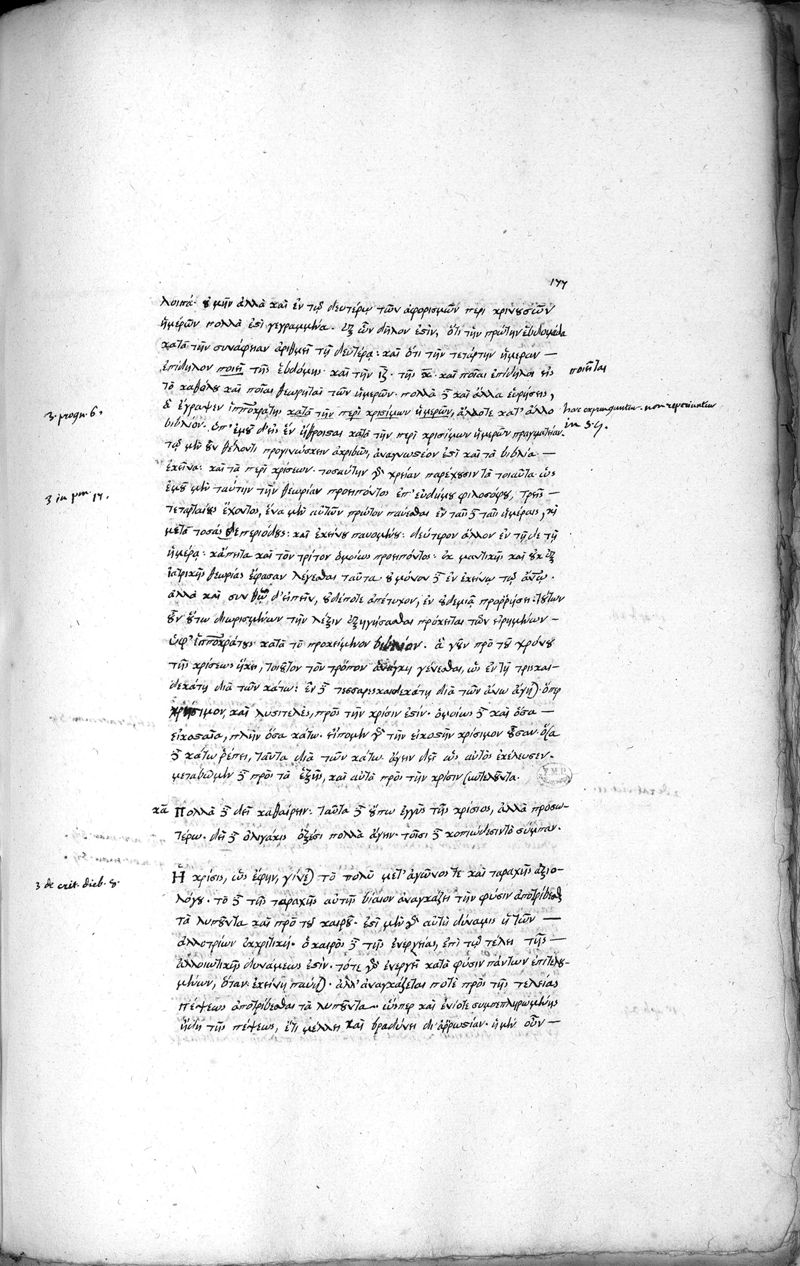 177
λοιπά· οὐ μὴν ἀλλὰ καὶ ἐν τῷ δευτέρῳ τῶν ἀφορισμῶν περὶ κρινουσῶν
ἡμερῶν πολλά ἐστι γεγραμμένα. ἐξ ὧν δῆλον ἐστὶν, ὅτι τὴν πρώτην ἑβδομάδα
κατὰ τὴν συνάφειαν ἀριθμεῖ τῇ δευτέρᾳ: καὶ ὅτι τὴν τετάρτην ἡμέραν
ἐπίδηλον ποιεῖ τῆς ἑβδόμης· καὶ τὴν ιζ· τῆς κ· καὶ ποῖαι ἐπίδηλοι εἰς
ποιεῖται
τὸ καθόλου καὶ ποῖαι θεωρηταὶ τῶν ἡμερῶν· πολλὰ δὲ καὶ ἄλλα εὑρήσεις,
3. progn. 6.
ἃ ἔγραψεν ἱπποκράτης κατὰ τὴν περὶ κρισίμων ἡμερῶν, ἄλλοτε κατ' ἄλλο
hoc expunguntur. non reperiuntur
in
βιβλίον. ὑπ' ἐμοῦ δ' εἰς ἓν ἤθροισται κατὰ τὴν περὶ κρισίμων ἡμερῶν πραγματείαν.
τῷ μὲν οὖν θέλοντι προγινώσκειν ἀκριβῶς, ἀναγνωστέον ἐστὶ καὶ τὰ βιβλία
ἐκεῖνα: καὶ τὰ περὶ κρίσεων· τοσαύτην γὰρ χρείαν παρέχουσιν τὰ τοιαῦτα ὡς
ἐμοῦ μὲν ταύτην τὴν θεωρίαν προειπόντος ἐπ' εὐδήμου φιλοσόφου, τρεῖς
τεταρταίους ἔχοντος, ἕνα μὲν αὐτῶν πρῶτον παύεσθαι ἐν ταῖσδε ταῖς ἡμέραις, καὶ
μετὰ τοσάσδε περιόδους: καὶ ἐκείνου παυομένου: δεύτερον ἄλλον ἐν τῇδε τῇ
ἡμέρᾳ: κἄπειτα καὶ τὸν τρίτον ὁμοίως προειπόντος· ἐκ μαντικῆς καὶ οὐκ ἐξ
ἰατρικῆς θεωρίας ἔφασαν λέγεσθαι ταῦτα· οὐ μόνον δὲ ἐν ἐκείνῳ τῷ
ἀλλὰ καὶ σὺν θεῷ δ' εἰπεῖν, οὐδέποτε ἀπέτυχον, ἐν οὐδεμιᾷ προρρήσει· τούτων
οὖν οὕτω διωρισμένων τὴν λέξιν ἐξηγήσασθαι πρόκειται τῶν εἰρημένων
ὑφ' ἱπποκράτους κατὰ τὸ προκείμενον βιβλίον. ἃ γοῦν πρὸ τοῦ χρόνου
τῆς κρίσεως ἥκει, τοιοῦτον τὸν τρόπον ἀνάγκη γενέσθαι, ὡς ἐν τῇ τρισκαι-
δεκάτῃ διὰ τῶν κάτω: ἐν δὲ τεσσαρισκαιδεκάτῃ διὰ τῶν ἄνω ὅπερ
χρήσιμον, καὶ λυσιτελὲς, πρὸς τὴν κρίσιν ἐστίν· ὁμοίως δὲ καὶ ὅσα
εἰκοσαῖα, πλὴν ὅσα κάτω· εἴπομεν γὰρ τὴν εἰκοστὴν κρίσιμον οὖσαν· ὅσα
δὲ κάτω ῥέπει, ταῦτα διὰ τῶν κάτω ἄγειν δεῖ ὡς αὐτὸς ἐκέλευσεν·
μεταβῶμεν δὲ πρὸς τὰ ἑξῆς, καὶ αὐτὰ πρὸς τὴν κρίσιν συντελοῦντα.
κα Πολλὰ δὲ δεῖ καθαίρειν: ταῦτα δὲ οὔπω ἐγγὺς τῆς κρίσιος, ἀλλὰ προσω-
τέρω· δεῖ δὲ ὀλιγάκις ὀξέσι πολλὰ ἄγειν· τοῖσι δὲ κοπιώδεσιν τὸ σύμπαν.
3 de crit. dieb. 8.
Ἡ κρίσις, ὡς ἔφην, γίνεται τὸ πολὺ μετ' ἀγῶνος τε καὶ ταραχῆς ἀξιο-
λόγου· τὸ δὲ τῆς ταραχῆς αὐτῆς βίαιον ἀναγκάζει τὴν φύσιν ἀποτρίβεσθαι
τὰ λυποῦντα καὶ πρὸ τοῦ καιροῦ· ἔστι μὲν γὰρ αὐτῇ δύναμις ἡ τῶν
ἀλλοτρίων ἐκκριτική· ὁ καιρὸς δὲ τῆς ἐνεργείας, ἐπὶ τῷ τέλει τῆς
ἀλλοιωτικῆς δυνάμεως ἐστίν· τότε γὰρ ἐνεργεῖ κατὰ φύσιν πάντων ἐπιτελου-
μένων, ὅταν ἐκείνη παύηται· ἀλλ' ἀναγκάζεται ποτε πρὸ τῆς τελείας
πέψεως ἀποτρίβεσθαι τὰ λυποῦντα· ὥσπερ καὶ ἐνίοτε συμπεπληρωμένης
ἤδη τῆς πέψεως, ἔτι μέλλει καὶ βραδύνει δι' ἀρρωστίαν· ἡ μὲν οὖν